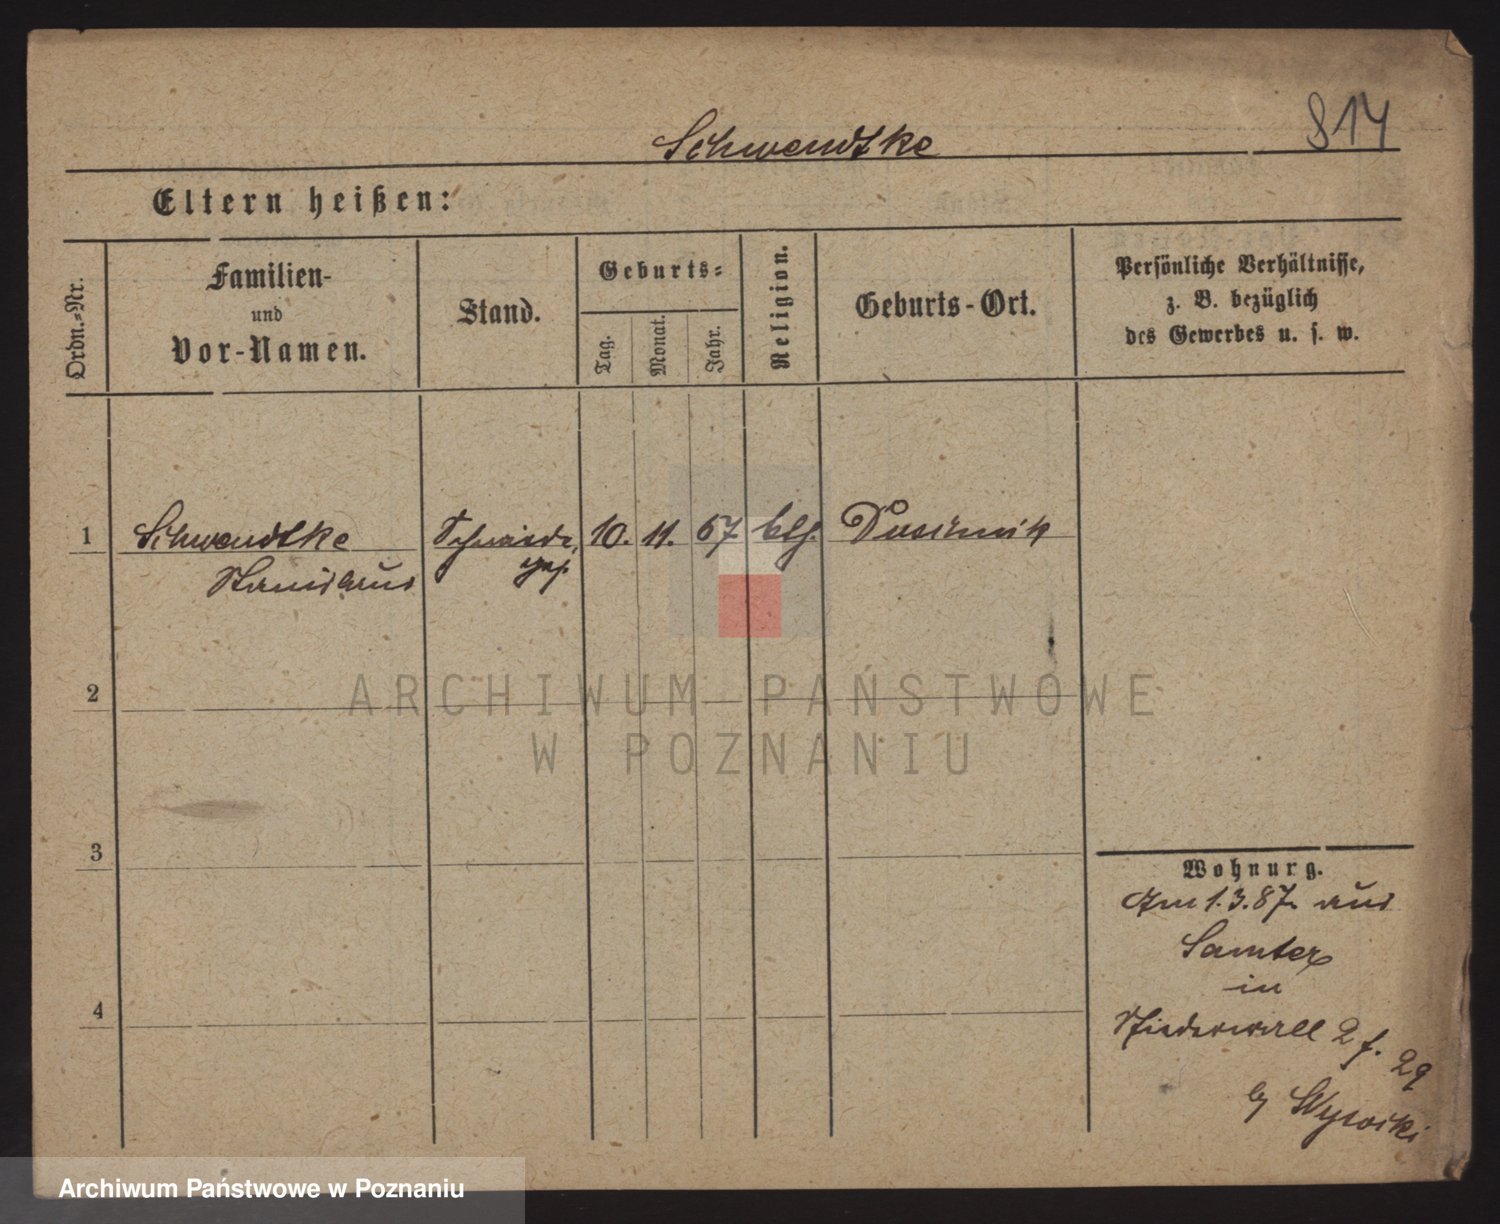 Schwendtke
814
Eltern heißen:
Ordn.-Nr.
Familien-
und
Vor-Namen.
Stand.
Geburts-
Tag.
Monat.
Jahr.
Religion.
Geburts-Ort.
Persönliche Verhältnisse,
z. B. bezüglich
des Gewerbes u. s. w.
1 Schwendtke Schneider 10. 11. 67 Duschnik
Stanislaus
2
3
4
Wohnung.
Am 1.3.87. aus
Samter
in
Niederwall 2 f. 29
b/ Wysocki
ARCHIWUM PAŃSTWOWE
W POZNANIU
Archiwum Państwowe w Poznaniu